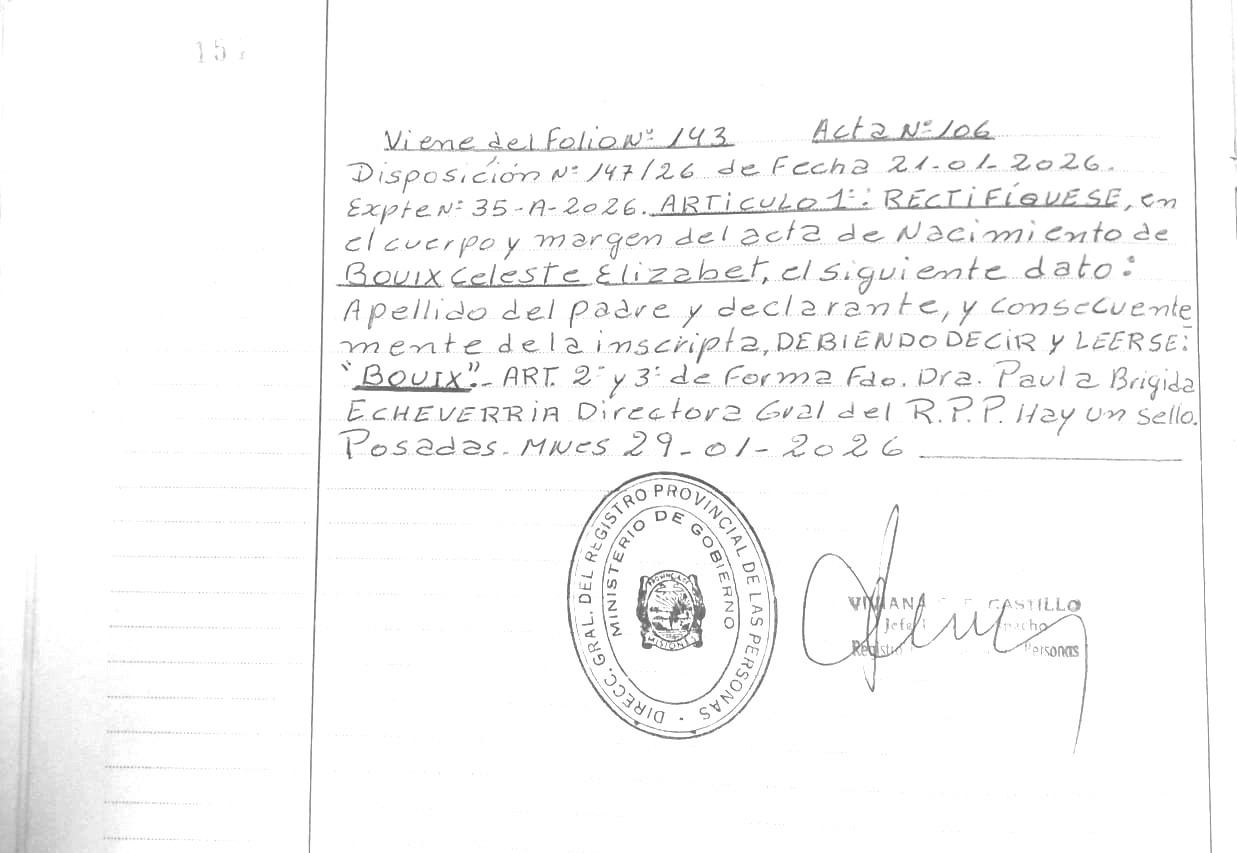 15
Viene del Folio Nº 143 Acta Nº 106
Disposición Nº 147/26 de Fecha 21-01-2026.
Expte Nº 35-A-2026. ARTICULO 1º: RECTIFÍQUESE, en
el cuerpo y margen del acta de Nacimiento de
BOUIX Celeste Elizabet, el siguiente dato:
Apellido del padre y declarante, y consecuente
mente de la inscripta, DEBIENDO DECIR y LEERSE:
"BOUIX".- ART. 2º y 3º de Forma Fdo. Dra. Paula Brigida
ECHEVERRIA Directora Gral del R.P.P. Hay un sello.
Posadas. MNES 29-01-2026
DIRECC. GRAL. DEL REGISTRO PROVINCIAL DE LAS PERSONAS
MINISTERIO DE GOBIERNO
MISIONES
VIVIANA CASTILLO
Personas